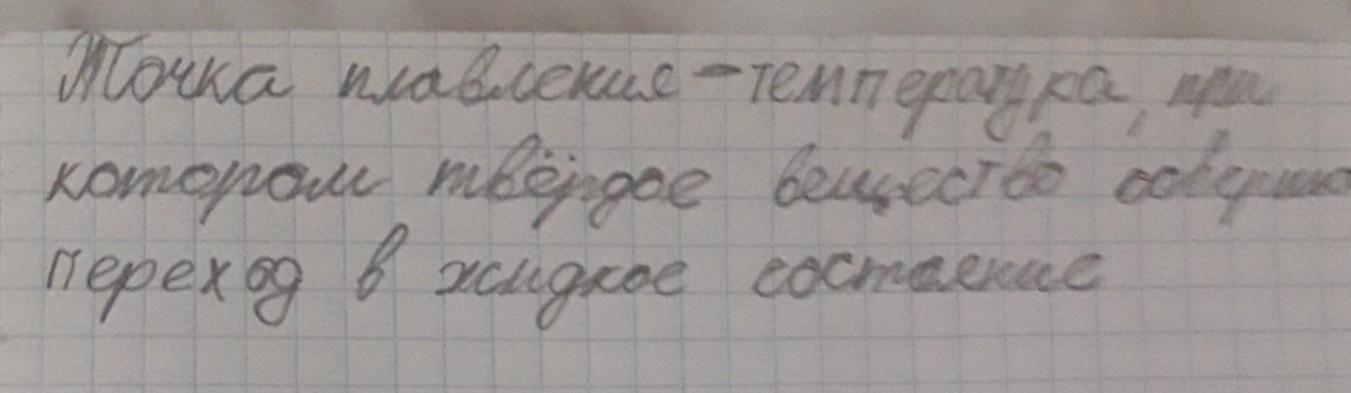 Точка плавления - температура, при
котором твёрдое вещество
переход в жидкое состаение